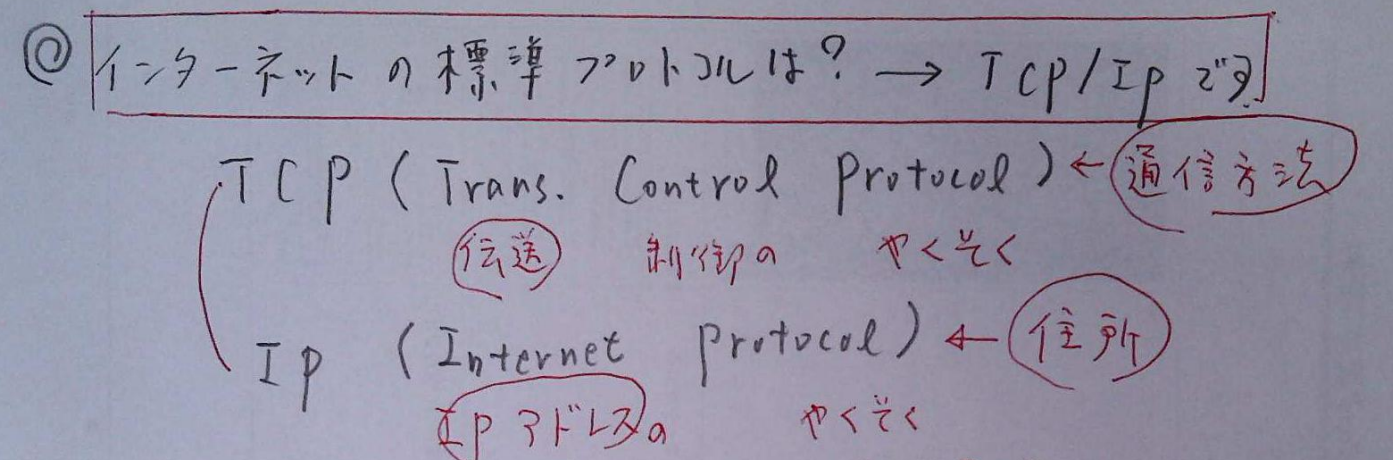 ◎ インターネットの標準プロトコルは? → TCP/IPです
TCP (Trans. Control Protocol) ← 通信方法
伝送 制御の やくそく
IP (Internet Protocol) ← 住所
IPアドレスの やくそく